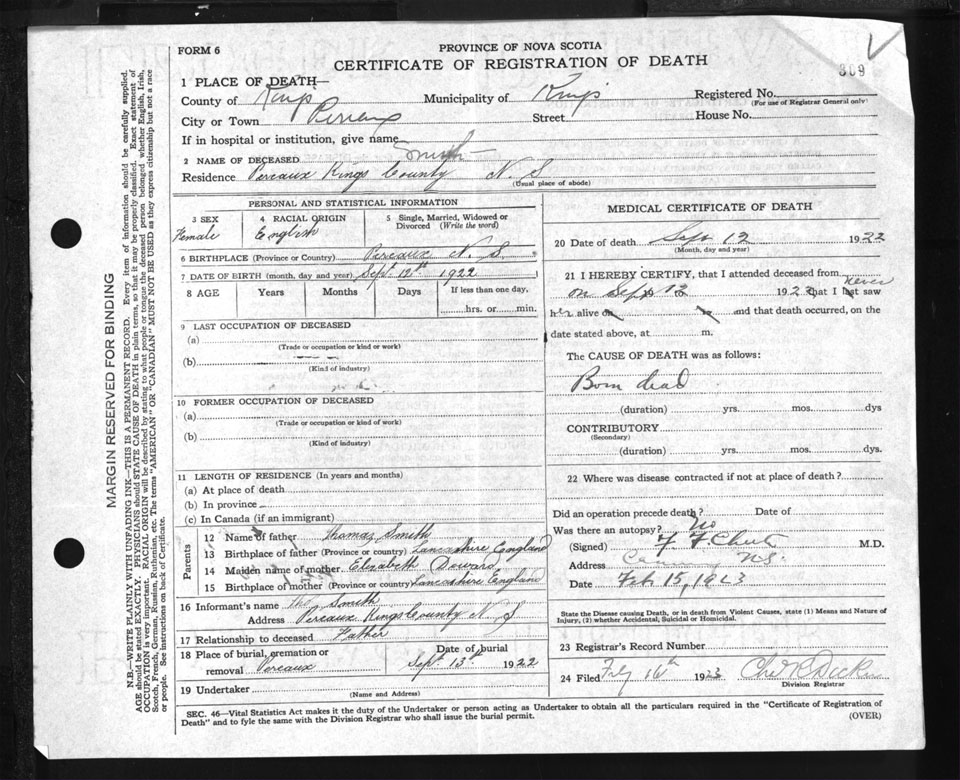 FORM 6
PROVINCE OF NOVA SCOTIA
CERTIFICATE OF REGISTRATION OF DEATH
309
1 PLACE OF DEATH—
County of Kings Municipality of Kings Registered No.
(For use of Registrar General only)
City or Town Street House No.
If in hospital or institution, give name
2 NAME OF DECEASED Smith
Residence Pereaux Kings County N. S
(Usual place of abode)
PERSONAL AND STATISTICAL INFORMATION
3 SEX
Female
4 RACIAL ORIGIN
English
5 Single, Married, Widowed or
Divorced (Write the word)
6 BIRTHPLACE (Province or Country) Pereaux N. S.
7 DATE OF BIRTH (month, day and year) Sept. 12th 1922
8 AGE Years Months Days If less than one day,
hrs. or min.
9 LAST OCCUPATION OF DECEASED
(a)
(Trade or occupation or kind or work)
(b)
(Kind of industry)
10 FORMER OCCUPATION OF DECEASED
(a)
(Trade or occupation or kind of work)
(b)
(Kind of industry)
11 LENGTH OF RESIDENCE (In years and months)
(a) At place of death
(b) In province
(c) In Canada (if an immigrant)
Parents
12 Name of father Thomas Smith
13 Birthplace of father (Province or country) Lancashire England
14 Maiden name of mother Elizabeth Deward
15 Birthplace of mother (Province or country) Lancashire England
16 Informant's name Tho Smith
Address Pereaux Kings County N S
17 Relationship to deceased Father
18 Place of burial, cremation or
removal Pereaux
Date of burial
Sept 13th 1922
19 Undertaker
(Name and Address)
MEDICAL CERTIFICATE OF DEATH
20 Date of death Sept 12 1922
(Month, day and year)
21 I HEREBY CERTIFY, that I attended deceased from
on Sept 12 1922 that I never saw
her alive on and that death occurred, on the
date stated above, at m.
The CAUSE OF DEATH was as follows:
Born dead
(duration) yrs. mos. dys
CONTRIBUTORY
(Secondary)
(duration) yrs. mos. dys.
22 Where was disease contracted if not at place of death?
Did an operation precede death? No Date of
Was there an autopsy?
(Signed) F. F Chute M.D.
Address NS.
Date Feb 15, 1923
State the Disease causing Death, or in death from Violent Causes, state (1) Means and Nature of
Injury, (2) whether Accidental, Suicidal or Homicidal.
23 Registrar's Record Number
24 Filed Feby 16th 1923
Division Registrar
SEC. 46—Vital Statistics Act makes it the duty of the Undertaker or person acting as Undertaker to obtain all the particulars required in the "Certificate of Registration of
Death" and to fyle the same with the Division Registrar who shall issue the burial permit.
(OVER)
MARGIN RESERVED FOR BINDING
N.B.—WRITE PLAINLY WITH UNFADING INK—THIS IS A PERMANENT RECORD. Every item of information should be carefully supplied.
AGE should be stated EXACTLY. PHYSICIANS should STATE CAUSE OF DEATH in plain terms, so that it may be properly classified. Exact statement of
OCCUPATION is very important. RACIAL ORIGIN will be described by stating to what people or tongue the deceased person belonged whether English, Irish,
Scotch, French, German, Russian, Ruthenian, etc. The terms "AMERICAN" OR "CANADIAN" MUST NOT BE USED as they express citizenship but not a race
or people. See instructions on back of Certificate.